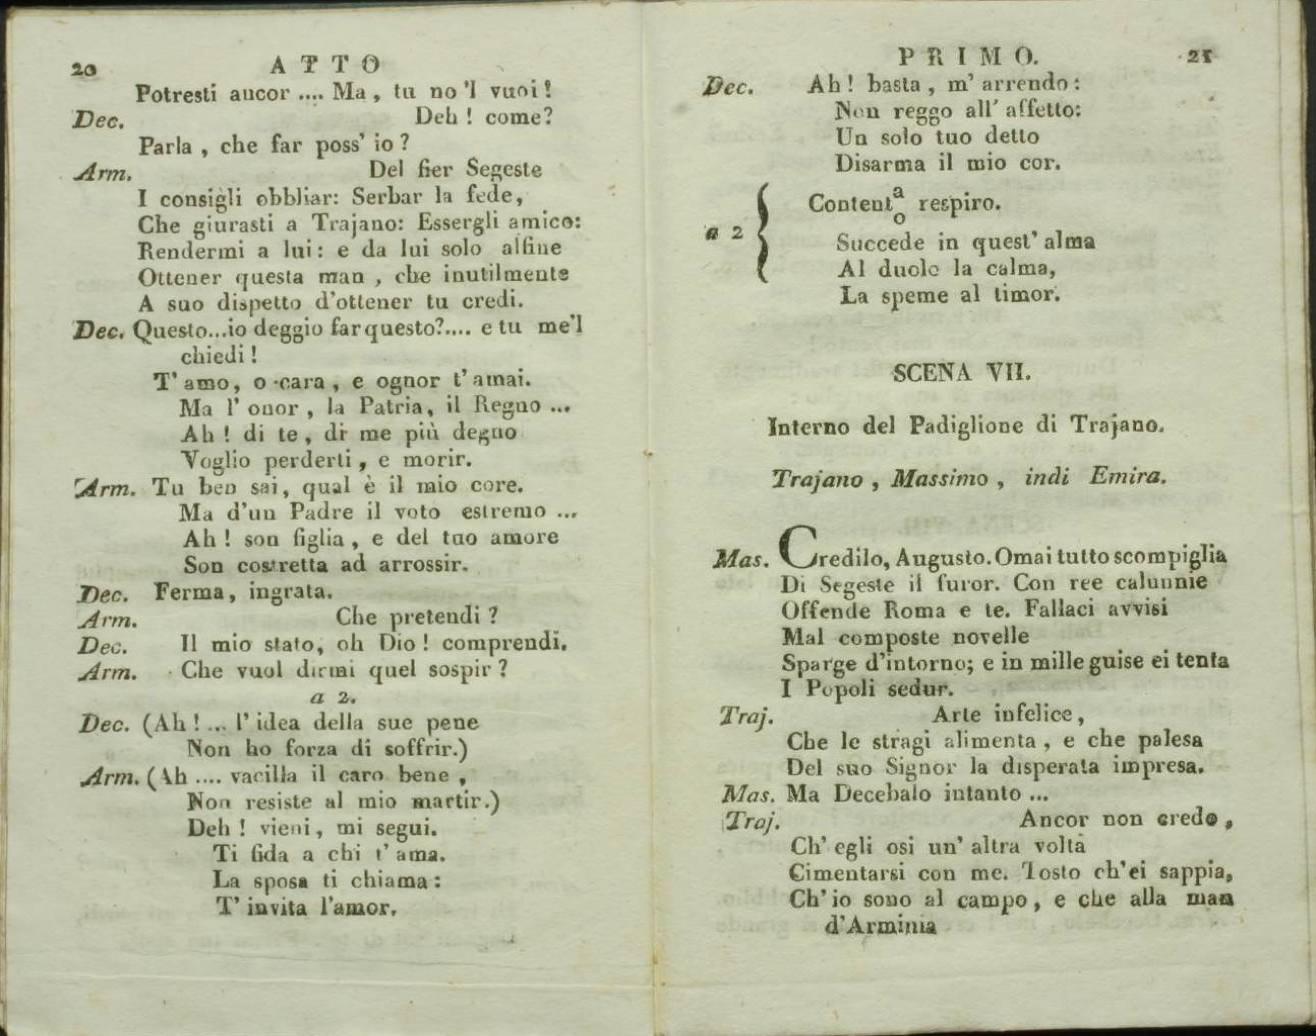 20 ATTO
Potresti ancor .... Ma, tu no 'l vuoi!
Dec. Deh! come?
Parla, che far poss' io?
Arm. Del fier Segeste
I consigli obbliar: Serbar la fede,
Che giurasti a Trajano: Essergli amico:
Rendermi a lui: e da lui solo alfine
Ottener questa man, che inutilmente
A suo dispetto d'ottener tu credi.
Dec. Questo...io deggio far questo?.... e tu me'l
chiedi!
T' amo, o cara, e ognor t' amai.
Ma l' onor, la Patria, il Regno ...
Ah! di te, di me più degno
Voglio perderti, e morir.
Arm. Tu ben sai, qual è il mio core.
Ma d'un Padre il voto estremo ...
Ah! son figlia, e del tuo amore
Son costretta ad arrossir.
Dec. Ferma, ingrata.
Arm. Che pretendi?
Dec. Il mio stato, oh Dio! comprendi.
Arm. Che vuol dirmi quel sospir?
a 2.
Dec. (Ah! ... l' idea della sue pene
Non ho forza di soffrir.)
Arm. (Ah .... vacilla il caro bene,
Non resiste al mio martir.)
Deh! vieni, mi segui.
Ti fida a chi t' ama.
La sposa ti chiama:
T' invita l'amor.
PRIMO. 21
Dec. Ah! basta, m' arrendo:
Non reggo all' affetto:
Un solo tuo detto
Disarma il mio cor.
a 2 { Content a/o respiro.
Succede in quest' alma
Al duolo la calma,
La speme al timor.
SCENA VII.
Interno del Padiglione di Trajano.
Trajano, Massimo, indi Emira.
Mas. Credilo, Augusto. Omai tutto scompiglia
Di Segeste il furor. Con ree calunnie
Offende Roma e te. Fallaci avvisi
Mal composte novelle
Sparge d'intorno; e in mille guise ei tenta
I Popoli sedur.
Traj. Arte infelice,
Che le stragi alimenta, e che palesa
Del suo Signor la disperata impresa.
Mas. Ma Decebalo intanto ...
Traj. Ancor non credo,
Ch' egli osi un' altra volta
Cimentarsi con me. Tosto ch'ei sappia,
Ch' io sono al campo, e che alla man
d'Arminia